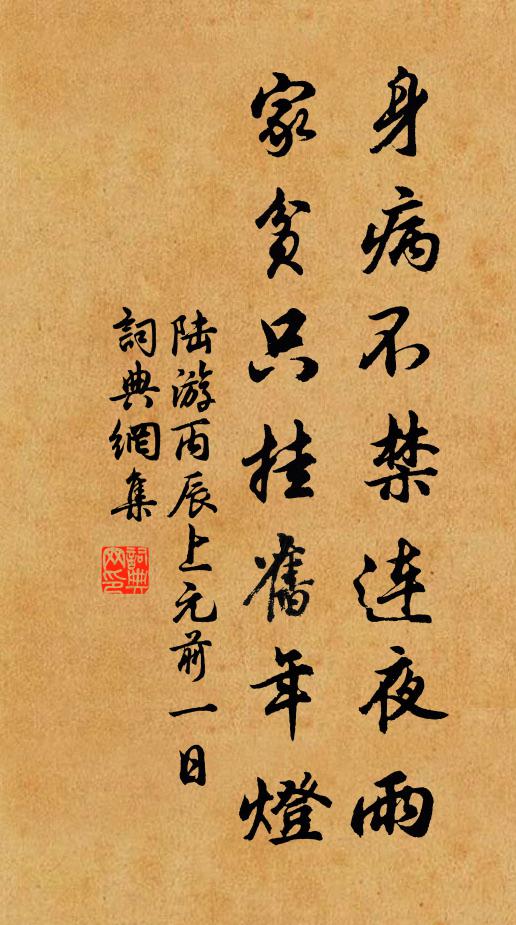 身病不禁連夜雨
家貧只挂舊年燈
陆游丙辰上元前一日
詞典網集
詞典網印